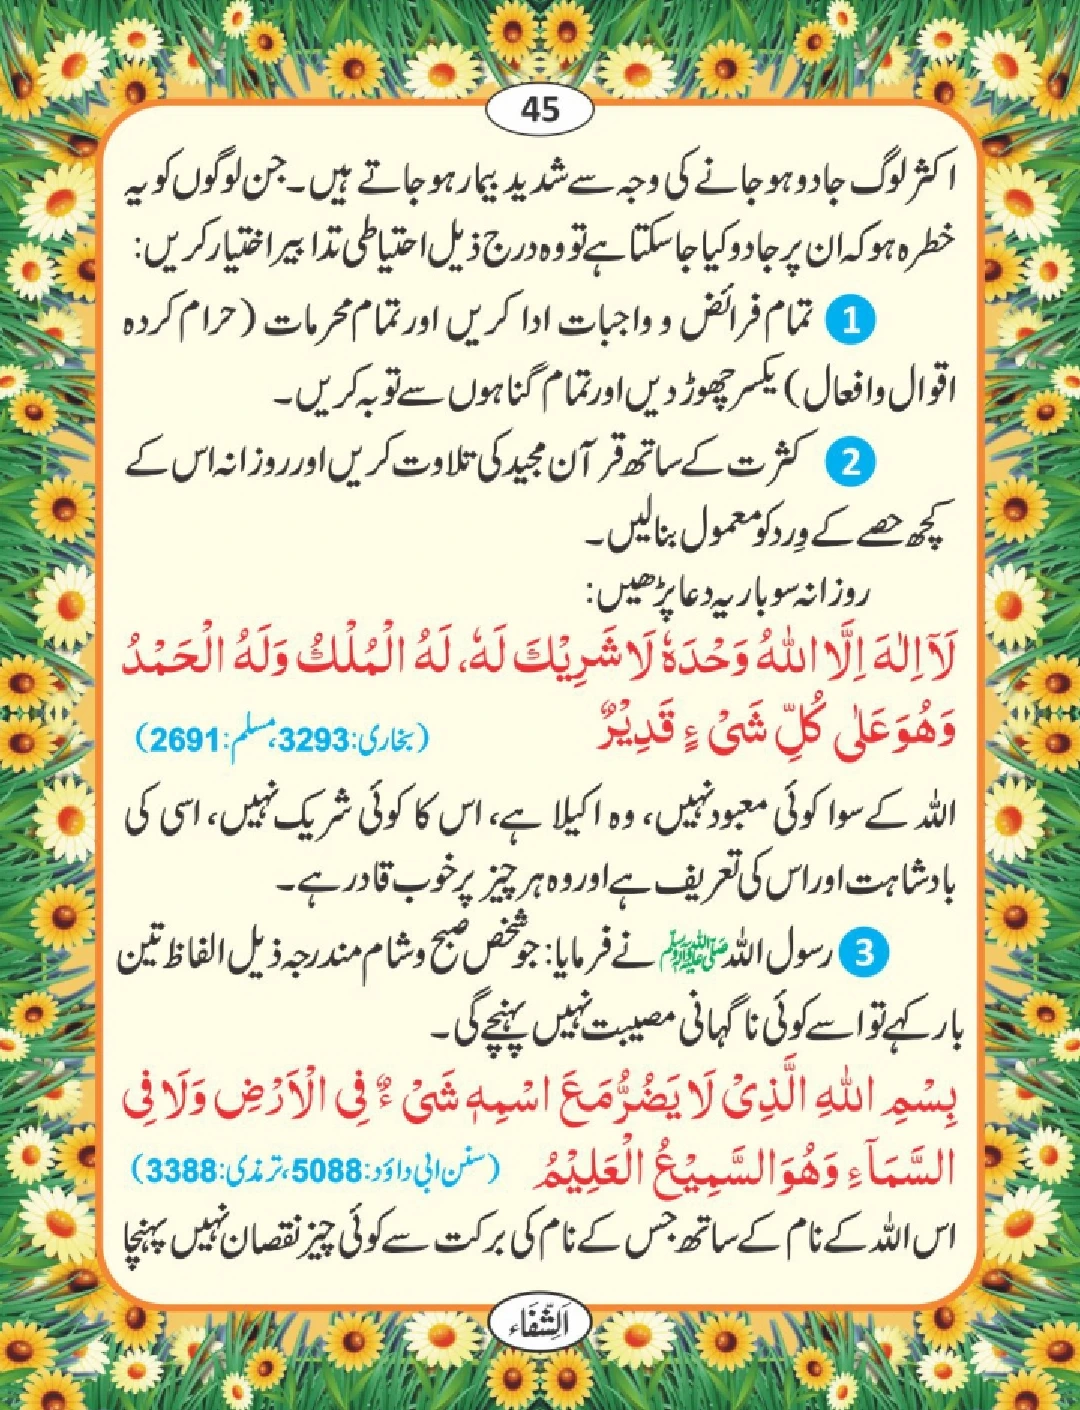 45
اکثر لوگ جادو ہو جانے کی وجہ سے شدید بیمار ہو جاتے ہیں۔ جن لوگوں کو یہ
خطرہ ہو کہ ان پر جادو کیا جا سکتا ہے تو وہ درج ذیل احتیاطی تدابیر اختیار کریں:
1 تمام فرائض و واجبات ادا کریں اور تمام محرمات (حرام کردہ
اقوال و افعال) یکسر چھوڑ دیں اور تمام گناہوں سے توبہ کریں۔
2 کثرت کے ساتھ قرآن مجید کی تلاوت کریں اور روزانہ اس کے
کچھ حصے کے وِرد کو معمول بنالیں۔
روزانہ سو بار یہ دعا پڑھیں:
لَآ اِلٰهَ اِلَّا اللهُ وَحْدَهٗ لَا شَرِيْكَ لَهٗ، لَهُ الْمُلْكُ وَلَهُ الْحَمْدُ
وَهُوَ عَلٰى كُلِّ شَىْءٍ قَدِيْرٌ (بخاری: 3293، مسلم: 2691)
اللہ کے سوا کوئی معبود نہیں، وہ اکیلا ہے، اس کا کوئی شریک نہیں، اسی کی
بادشاہت اور اس کی تعریف ہے اور وہ ہر چیز پر خوب قادر ہے۔
3 رسول اللہ ﷺ نے فرمایا: جو شخص صبح و شام مندرجہ ذیل الفاظ تین
بار کہے تو اسے کوئی ناگہانی مصیبت نہیں پہنچے گی۔
بِسْمِ اللهِ الَّذِىْ لَا يَضُرُّ مَعَ اسْمِهٖ شَىْءٌ فِى الْاَرْضِ وَلَا فِى
السَّمَآءِ وَهُوَ السَّمِيْعُ الْعَلِيْمُ (سنن ابی داؤد: 5088، ترمذی: 3388)
اس اللہ کے نام کے ساتھ جس کے نام کی برکت سے کوئی چیز نقصان نہیں پہنچا
اَلشِّفَاء